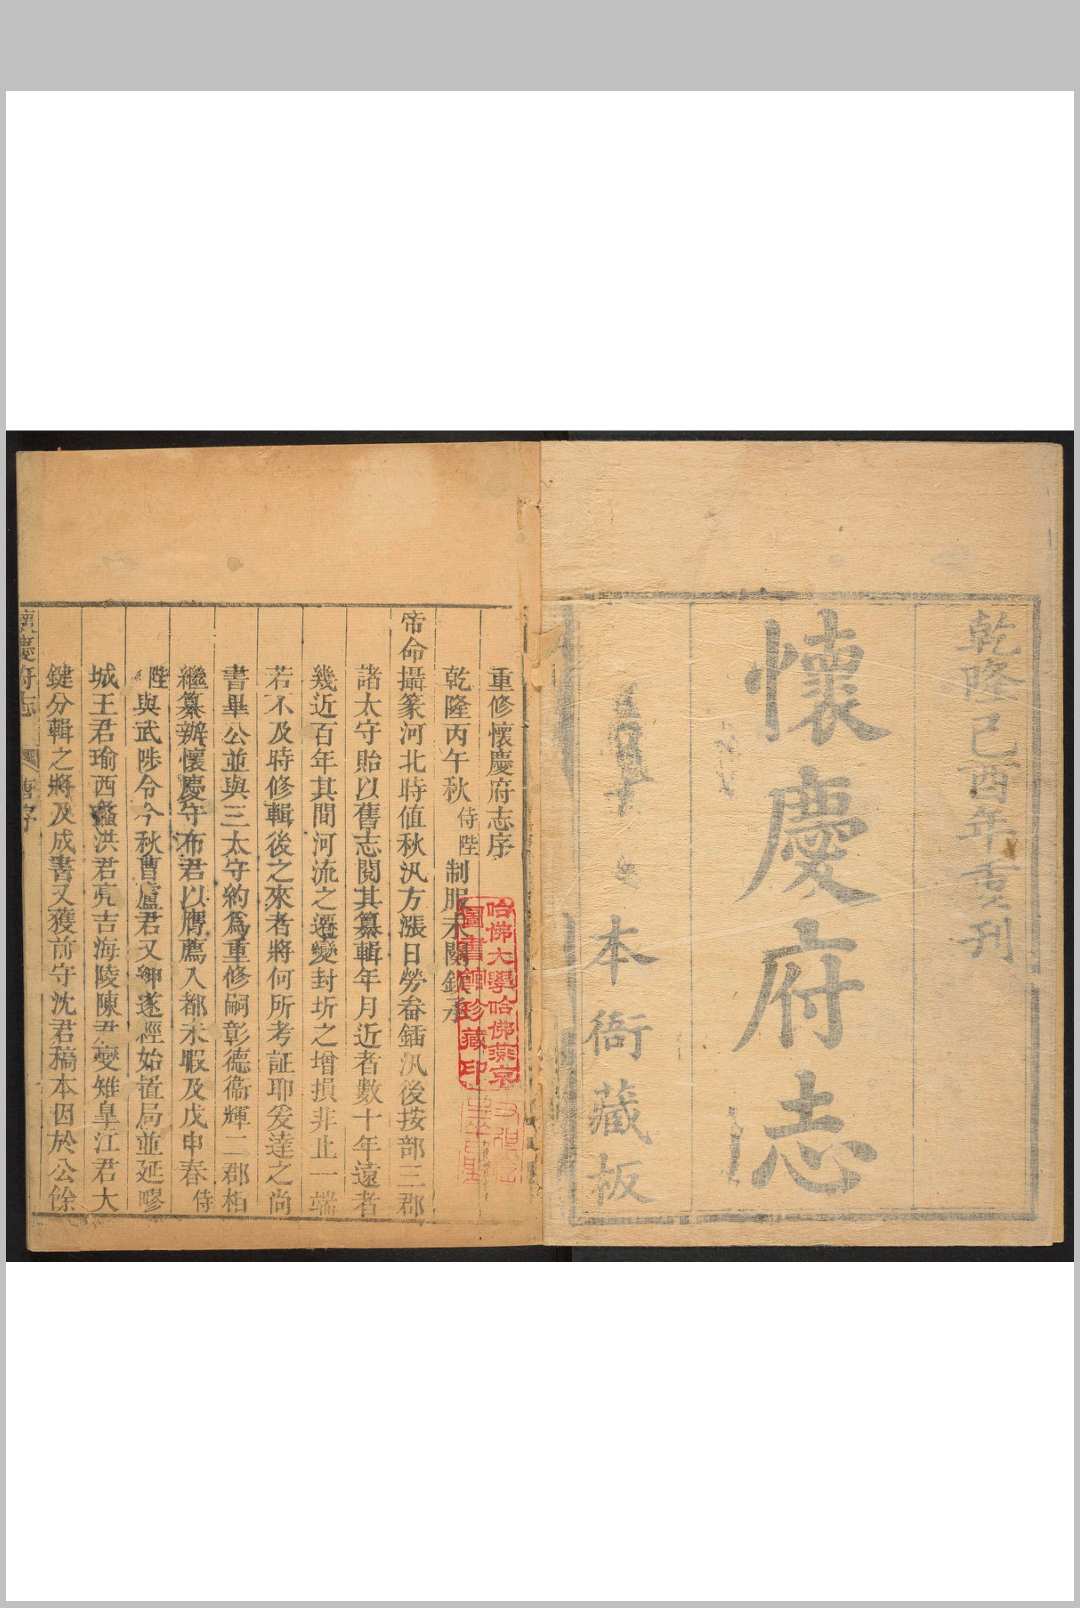 乾隆己酉年重刊
懷慶府志
本衙藏板
重修懷慶府志序
乾隆丙午秋侍陛制服未闋欽承
帝命攝篆河北時值秋汛方漲日勞畚鍤汛後按部三郡
諸太守貽以舊志閱其纂輯年月近者數十年遠者
幾近百年其間河流之遷變封圻之增損非止一端
若不及時修輯後之來者將何所考証耶爰達之尚
書畢公並與三太守約為重修嗣彰德衞輝二郡相
繼纂辦懷慶守布君以膺薦入都未暇及戊申春侍
陛與武陟令今秋曹盧君又紳遂經始置局並延嘐
城王君瑜西蠡洪君亮吉海陵陳君燮雉皐江君大
鍵分輯之將及成書又獲前守沈君稿本因於公餘
懷慶府志
唐序
哈佛大學哈佛燕京
圖書館珍藏印